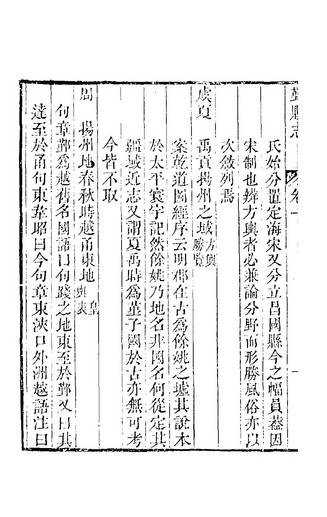 鄞縣志 卷一
氏始分置定海宋又分立昌國縣今之幅員葢因
宋制也辨方輿者必兼論分野而形勝風俗亦以
次敘列焉
虞夏 禹貢揚州之域方輿勝覽
案乾道圖經序云明郡在古爲餘姚之墟其說本
於太平寰宇記然餘姚乃地名非國名何從定其
疆域近志又謂夏禹時爲堇子國於古亦無可考
今皆不取
周 揚州地春秋時越甬東地皇輿表
句章鄞爲越舊名國語曰句踐之地東至於鄞又曰其
達至於甬句東韋昭曰今句章東浹口外洲越語注曰